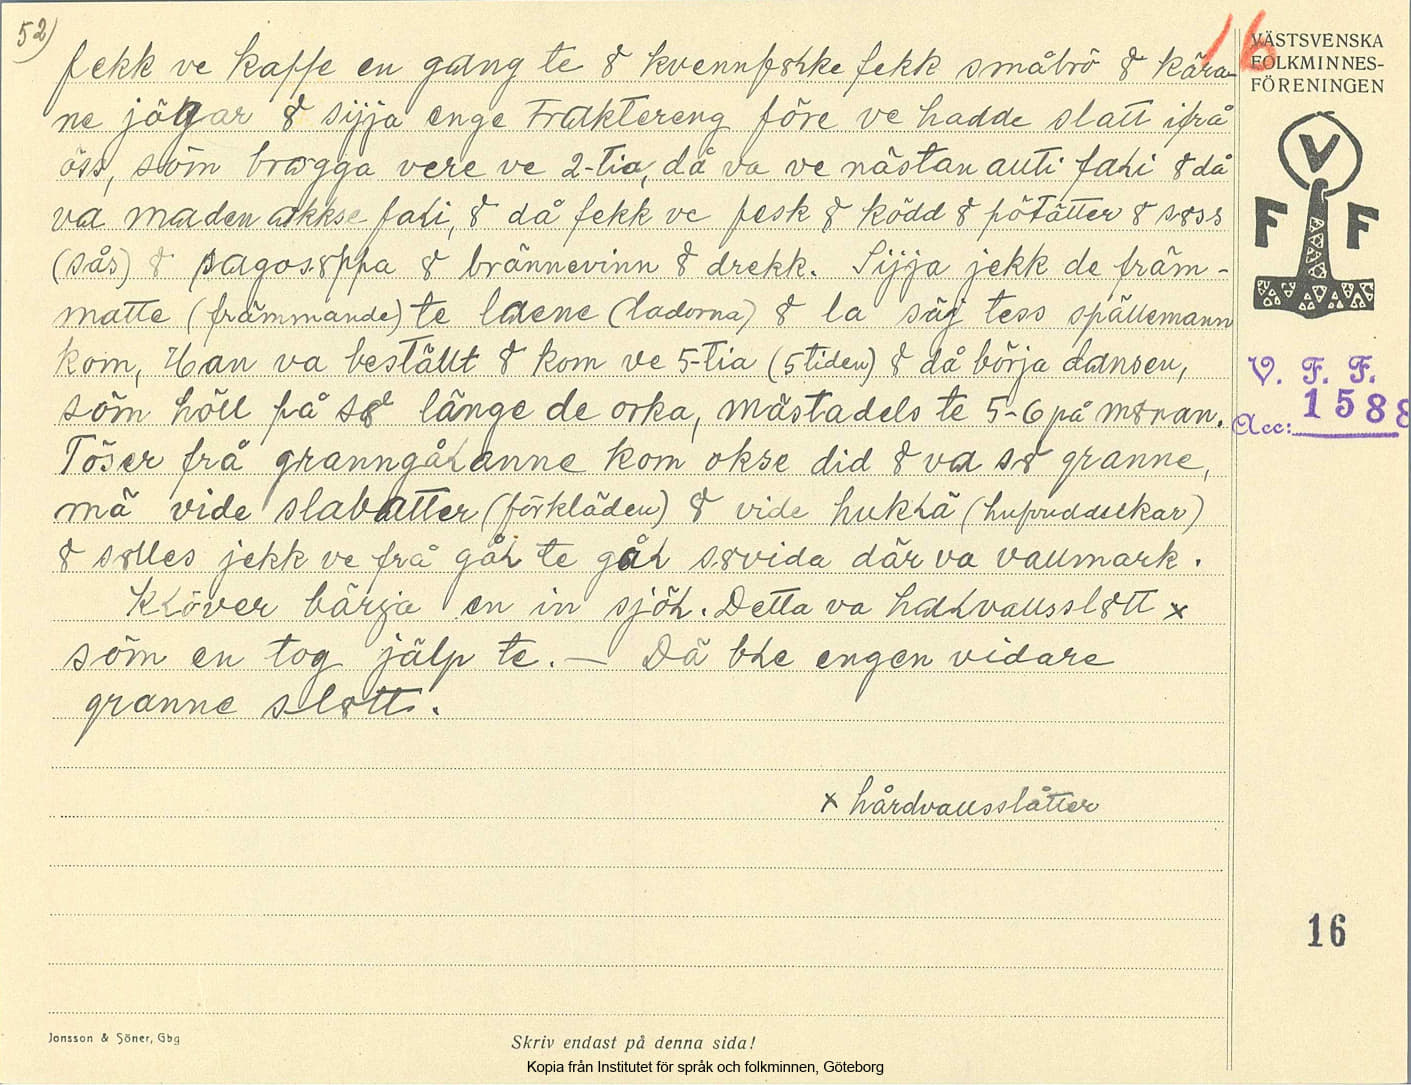 52)
fekk ve kaffe en gang te 8 kvennfolke fekk småbrö 8 kära-
ne jögar 8 sijja enge Fraktereng före ve hadde slatt ifrå
öss, söm brøgga vere ve 2-tia, då va ve nästan auti faLi 8 då
va maden akkse faLi, 8 då fekk ve fesk 8 ködd 8 pötätter 8 s8s8
(sås) 8 sagos8ppa 8 brännevinn 8 drekk. Sijja jekk de främ-
matte (främmande) te laene (ladorna) 8 la säj tess spällemann
kom, Han va beställt 8 kom ve 5-tia (5 tiden) 8 då börja dansen,
söm höll på s8 länge de orka, mästadels te 5-6 på m8ran.
Töser frå granngåLanne kom okse did 8 va s8 granne,
mä vide slabatter (förkläden) 8 vide hukLä (huvuddukar)
8 s8lles jekk ve frå gåL te gåL s8vida där va vallmark.
KLöver bärja en in sjöL. Detta va haLvallssl8tt x
söm en tog jälp te. — Dä bLe engen vidare
granne sl8tt.
x hårdvallsslåtter
16
VÄSTSVENSKA
FOLKMINNES-
FÖRENINGEN
V
F F
V. F. F.
Acc: 1588
16
Jonsson & Söner, Gbg
Skriv endast på denna sida!
Kopia från Institutet för språk och folkminnen, Göteborg